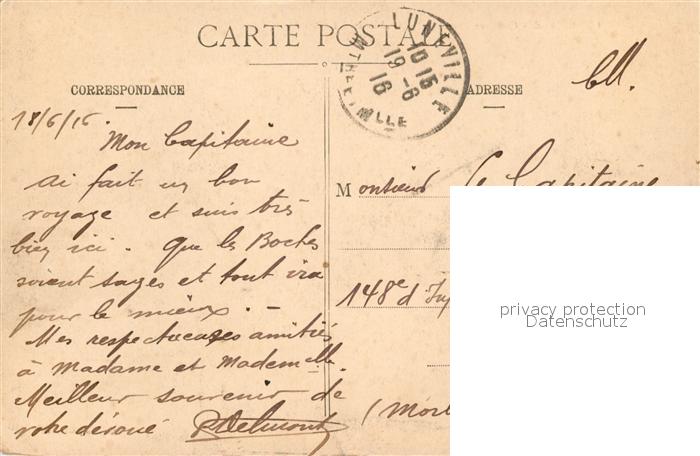 CARTE POSTALE
LUNEVILLE
10 15
19-6
16
MTHE ET MLLE
CORRESPONDANCE
ADRESSE
18/6/16
Mon Capitaine
Ai fait un bon
voyage et suis très
bien ici. Que les Boches
soient sages et tout ira
pour le mieux. –
Mes respectueuses amitiés
à Madame et Mademelle.
Meilleur souvenir de
votre dévoué RDelmont
Monsieur le Capitaine
148e d'Inf
(Morb
privacy protection
Datenschutz